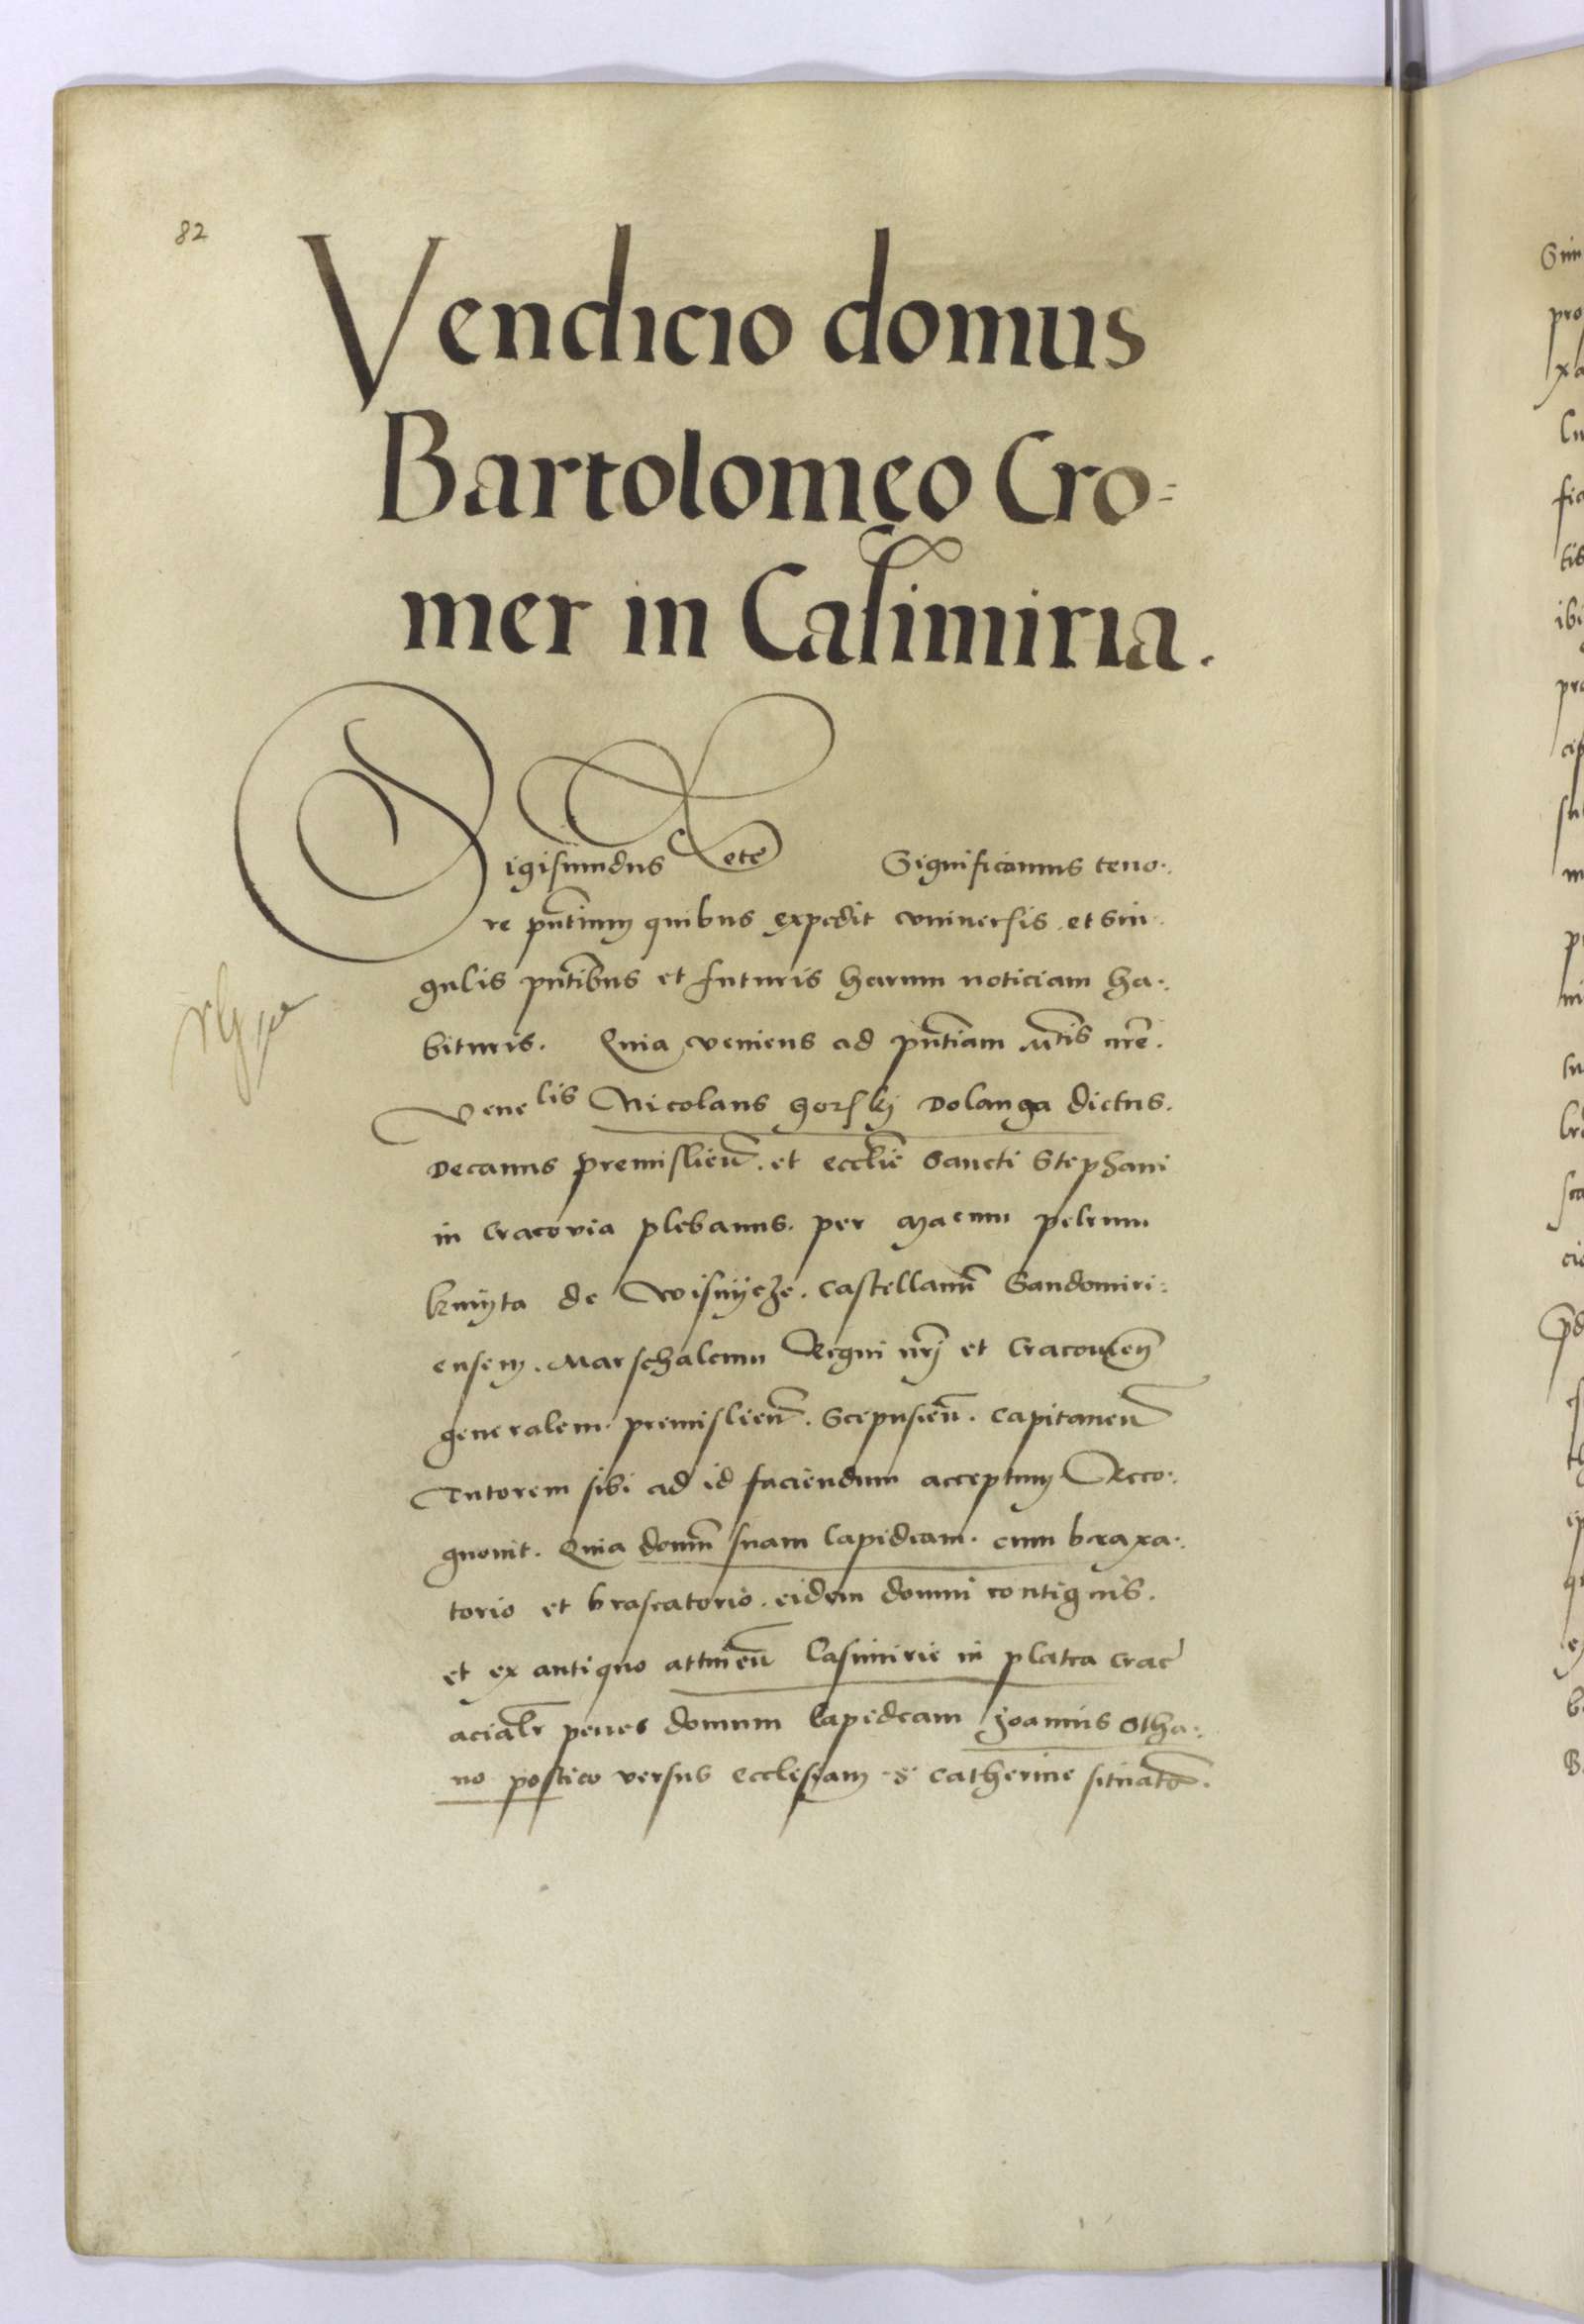 82
Vendicio domus
Bartolomęo Cro=
mer in Casimiria.
Sigismundus etc Significamus teno-
re pñtium quibus expedit vniuersis et sin-
gulis pñtibus et futuris harum noticiam ha-
bituris. Quia veniens ad pñtiam Mtis nrẽ.
Venelis Nicolaus gorskj Dolanga dictus.
Decanus premislieñ. et eccliẽ Sancti Stephani
in Cracovia plebanus. per Macum petrum
kmyta de Wisnycze. Castellanũ Sandomiri-
ensem. Marschalcum Regni nrj et Cracouieñ
generalem. premislieñ. Scepusieñ. Capitaneũ
Tutorem sibi ad id faciendum acceptum Reco-
gnouit. Quia domũ suam lapideam. cum braxa-
torio et brascatorio. eidem domui contiguis.
et ex antiquo attineñ Casimirie in platea Crac
acialr penes domum lapideam Joannis Otha-
no postico versus ecclesiam S. Catherine situatõ.